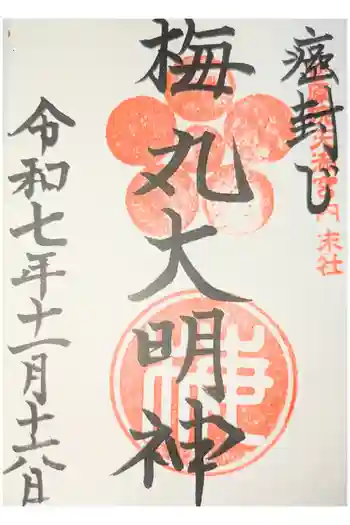 癌封じ
末社
梅丸大明神
令和七年十一月十六日